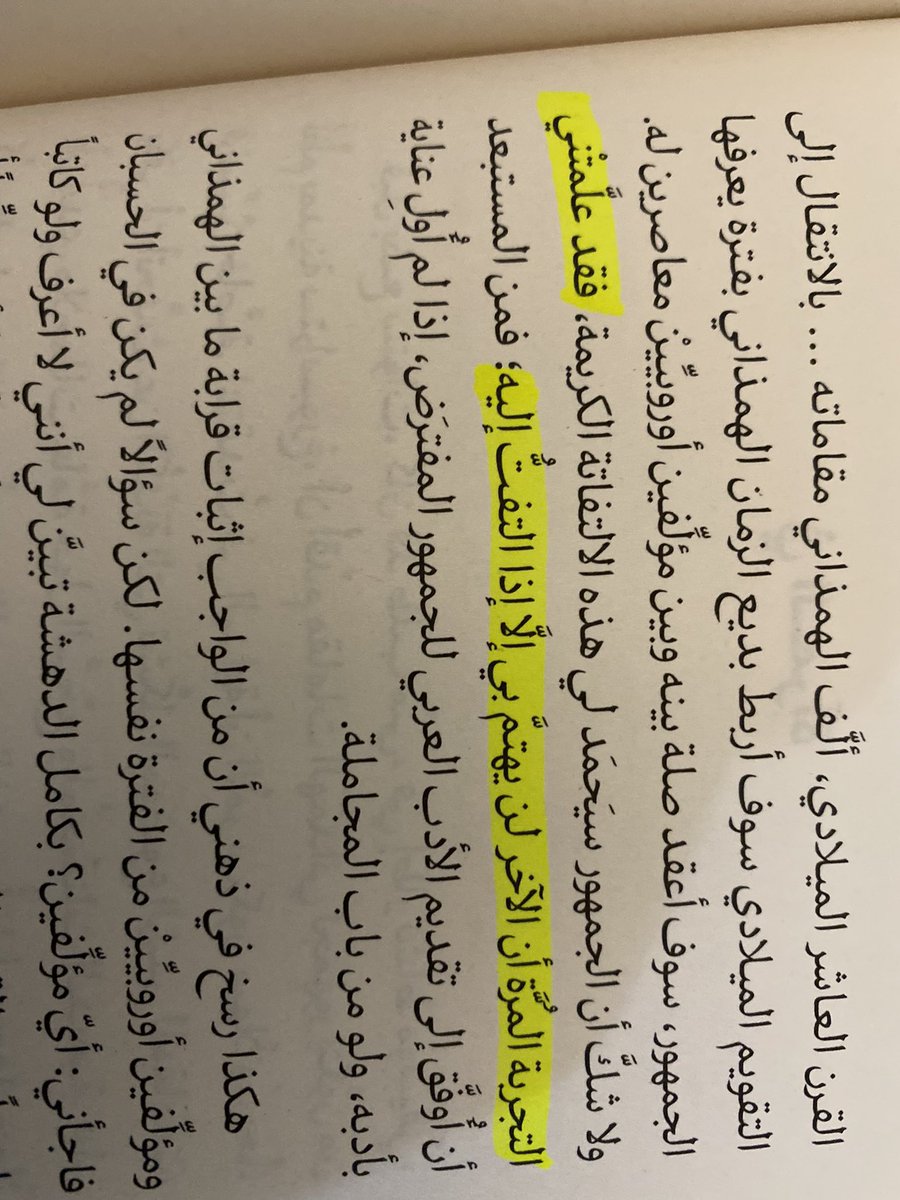 القرن العاشر الميلادي، ألَّف الهمذاني مقاماته ... بالانتقال إلى
التقويم الميلادي سوف أربط بديع الزمان الهمذاني بفترة يعرفها
الجمهور، سوف أعقد صلة بينه وبين مؤلِّفين أوروبيِّيْن معاصرين له.
ولا شكَّ أن الجمهور سيَحمَد لي هذه الالتفاتة الكريمة، فقد علَّمتْني
التجربة المُرَّة أن الآخر لن يهتمَّ بي إلَّا إذا التفتُّ إليه؛ فمن المستبعد
أن أُوفَّق إلى تقديم الأدب العربي للجمهور المفترَض، إذا لم أُولِ عناية
بأدبه، ولو من باب المجاملة.
هكذا رسخ في ذهني أن من الواجب إثبات قرابة ما بين الهمذاني
ومؤلِّفين أوروبيِّيْن من الفترة نفسها. لكن سؤالاً لم يكن في الحسبان
فاجأني: أيّ مؤلِّفين؟ بكامل الدهشة تبيَّن لي أنني لا أعرف ولو كاتباً